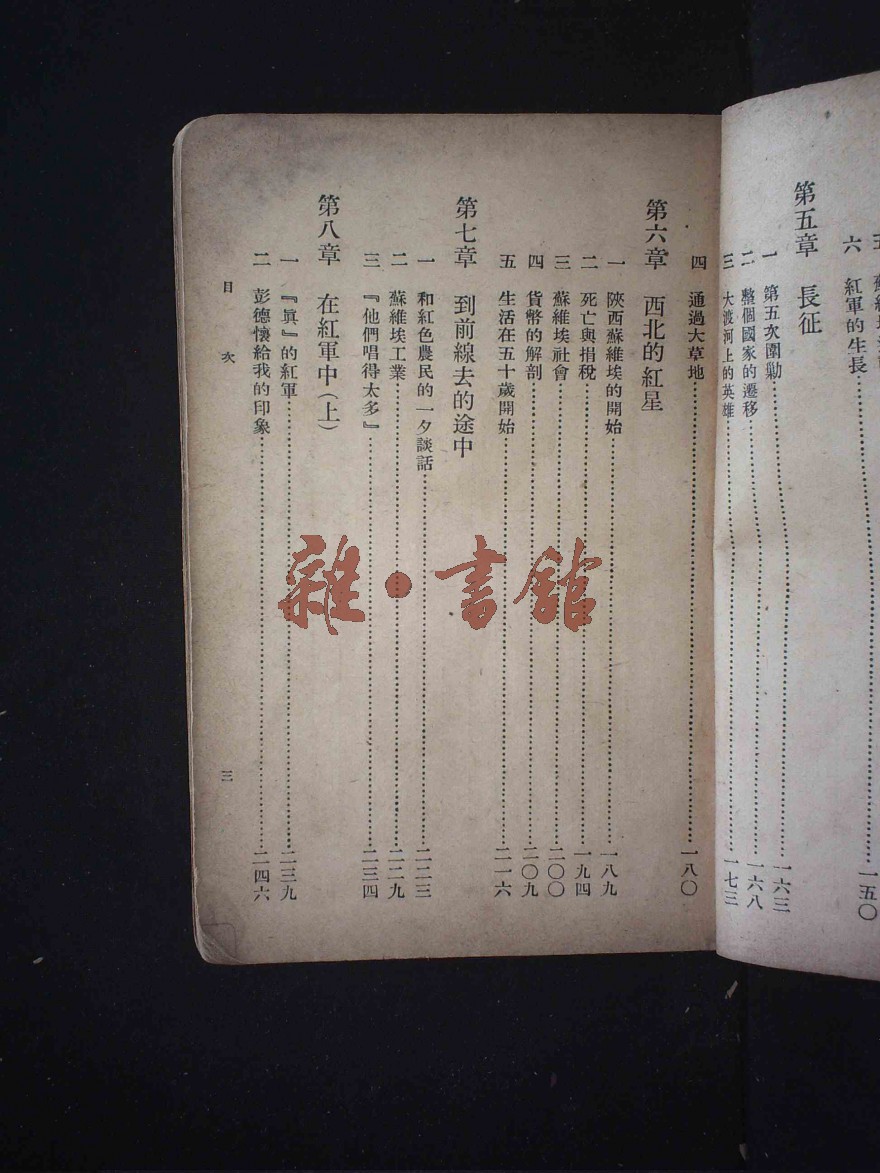 六　紅軍的生長……一五〇
第五章　長征
一　第五次圍勦……一六三
二　整個國家的遷移……一六八
三　大渡河上的英雄……一七三
四　通過大草地……一八〇
第六章　西北的紅星
一　陝西蘇維埃的開始……一八九
二　死亡與捐稅……一九四
三　蘇維埃社會……二〇〇
四　貨幣的解剖……二〇九
五　生活在五十歲開始……二一六
第七章　到前線去的途中
一　和紅色農民的一夕談話……二二三
二　蘇維埃工業……二二九
三　『他們唱得太多』……二三四
第八章　在紅軍中（上）
一　『眞』的紅軍……二三九
二　彭德懷給我的印象……二四六
目次　三
雜·書館